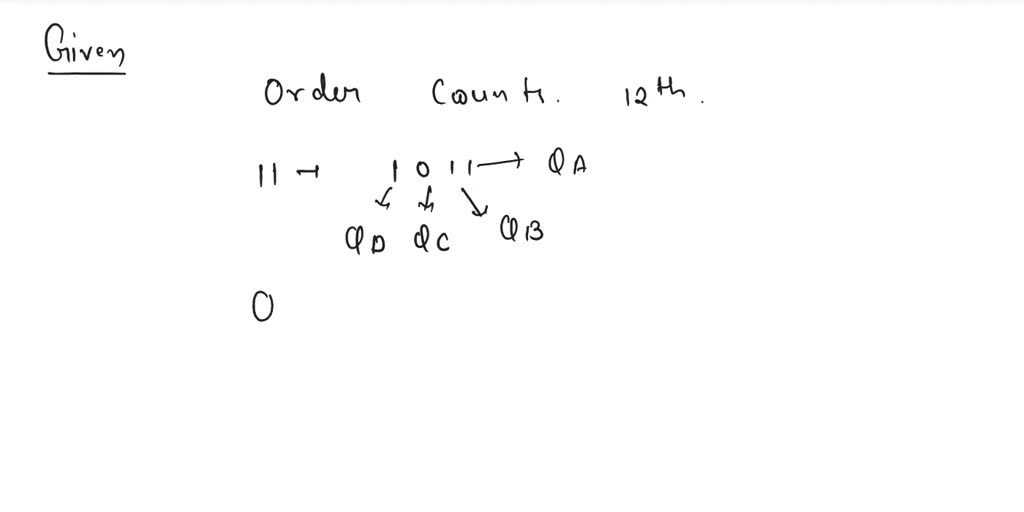 Given
Order Counts. 12th.
11 → 1 0 1 1 → QA
QD QC QB
0